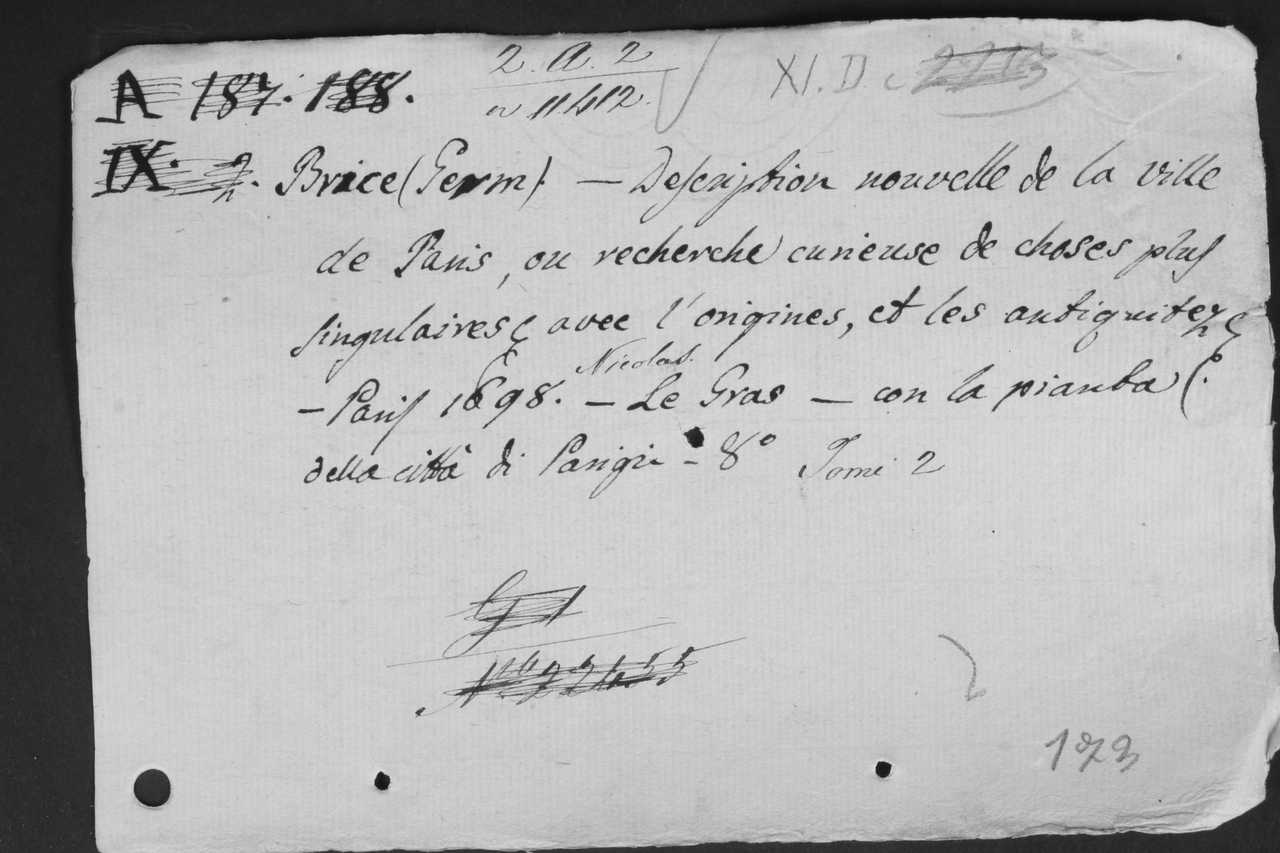 A 187. 188. 2. A. 2 XI. D.
11412.
IX. 2. Brice (Germ). — Description nouvelle de la ville
de Paris, ou recherche curieuse de choses plus
singulaires, avec l'origines, et les antiquitez
Nicolas.
— Paris 1698. — Le Gras — con la pianta
della città di Parigi - 8º Tomi 2
G 1
22455
173